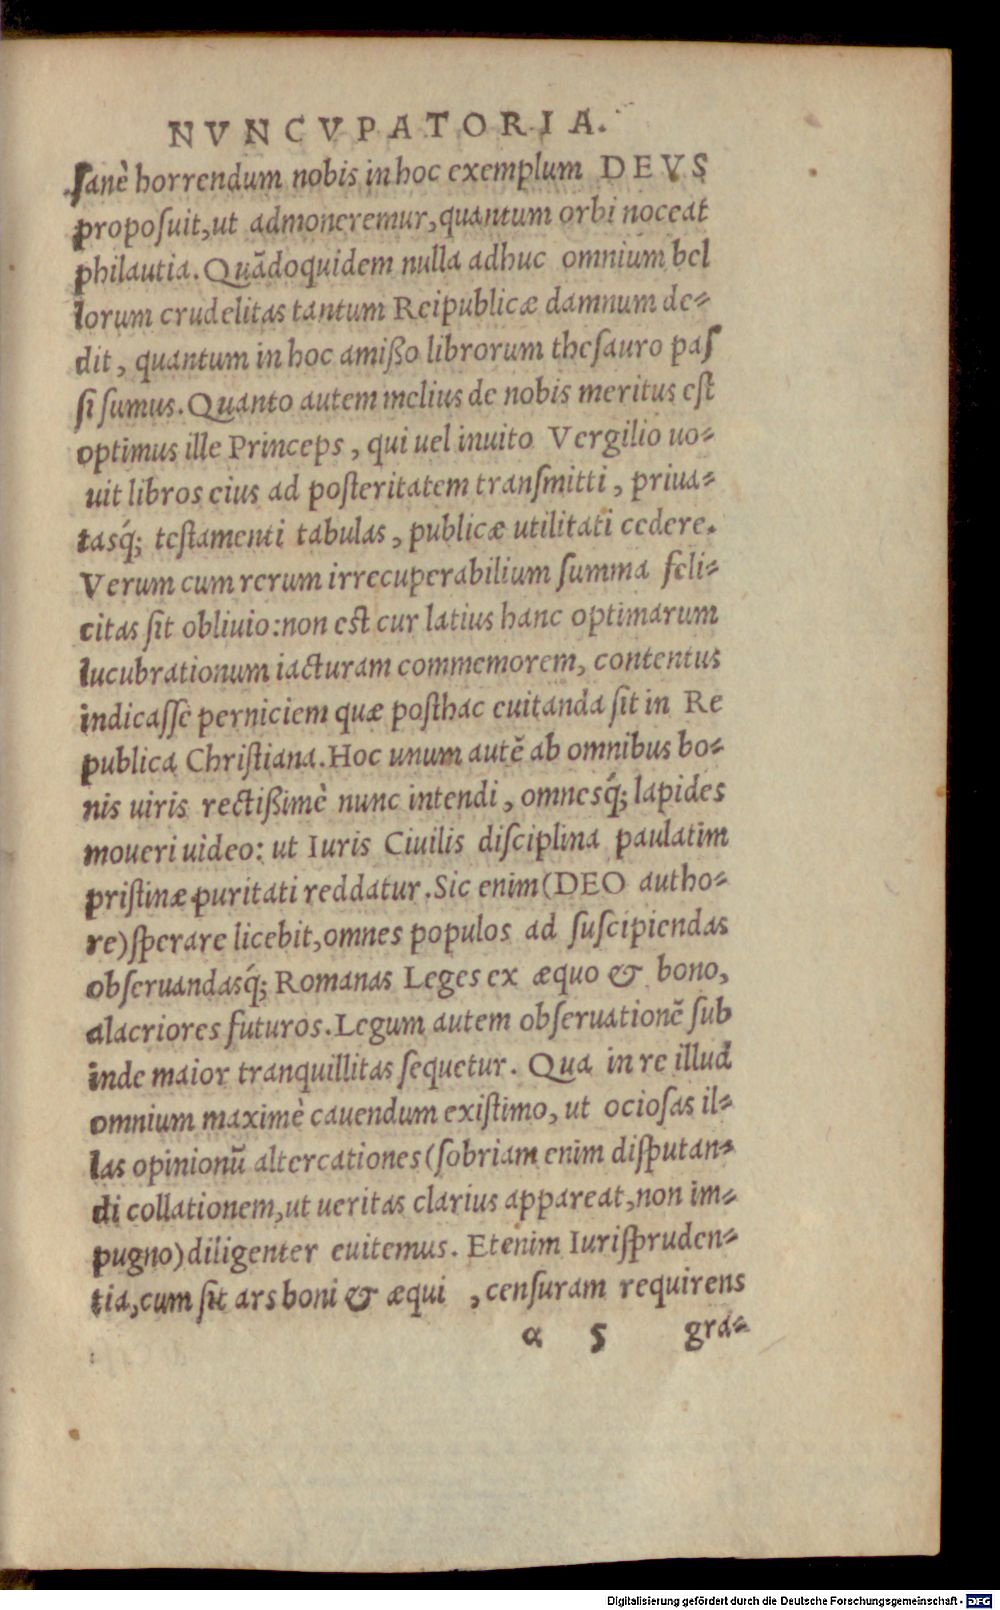 NVNCVPATORIA.
ſanè horrendum nobis in hoc exemplum DEVS
propoſuit, ut admoneremur, quantum orbi noceat
philautia. Quãdoquidem nulla adhuc omnium bel
lorum crudelitas tantum Reipublicæ damnum de-
dit, quantum in hoc amißo librorum theſauro paſ
ſi ſumus. Quanto autem melius de nobis meritus eſt
optimus ille Princeps, qui uel inuito Vergilio uo-
uit libros eius ad poſteritatem tranſmitti, priua-
tasq́; teſtamenti tabulas, publicæ utilitati cedere.
Verum cum rerum irrecuperabilium ſumma feli-
citas ſit obliuio: non eſt cur latius hanc optimarum
lucubrationum iacturam commemorem, contentus
indicaſſe perniciem quæ poſthac euitanda ſit in Re
publica Chriſtiana. Hoc unum autẽ ab omnibus bo-
nis uiris rectißimè nunc intendi, omnesq́; lapides
moueri uideo: ut Iuris Ciuilis diſciplina paulatim
priſtinæ puritati reddatur. Sic enim (DEO autho-
re) ſperare licebit, omnes populos ad ſuſcipiendas
obſeruandasq́; Romanas Leges ex æquo & bono,
alacriores futuros. Legum autem obſeruationẽ ſub
inde maior tranquillitas ſequetur. Qua in re illud
omnium maximè cauendum exiſtimo, ut ocioſas il-
las opinionũ altercationes (ſobriam enim diſputan-
di collationem, ut ueritas clarius appareat, non im-
pugno) diligenter euitemus. Etenim Iuriſpruden-
tia, cum ſit ars boni & æqui, cenſuram requirens
α 5 gra-
Digitalisierung gefördert durch die Deutsche Forschungsgemeinschaft - DFG